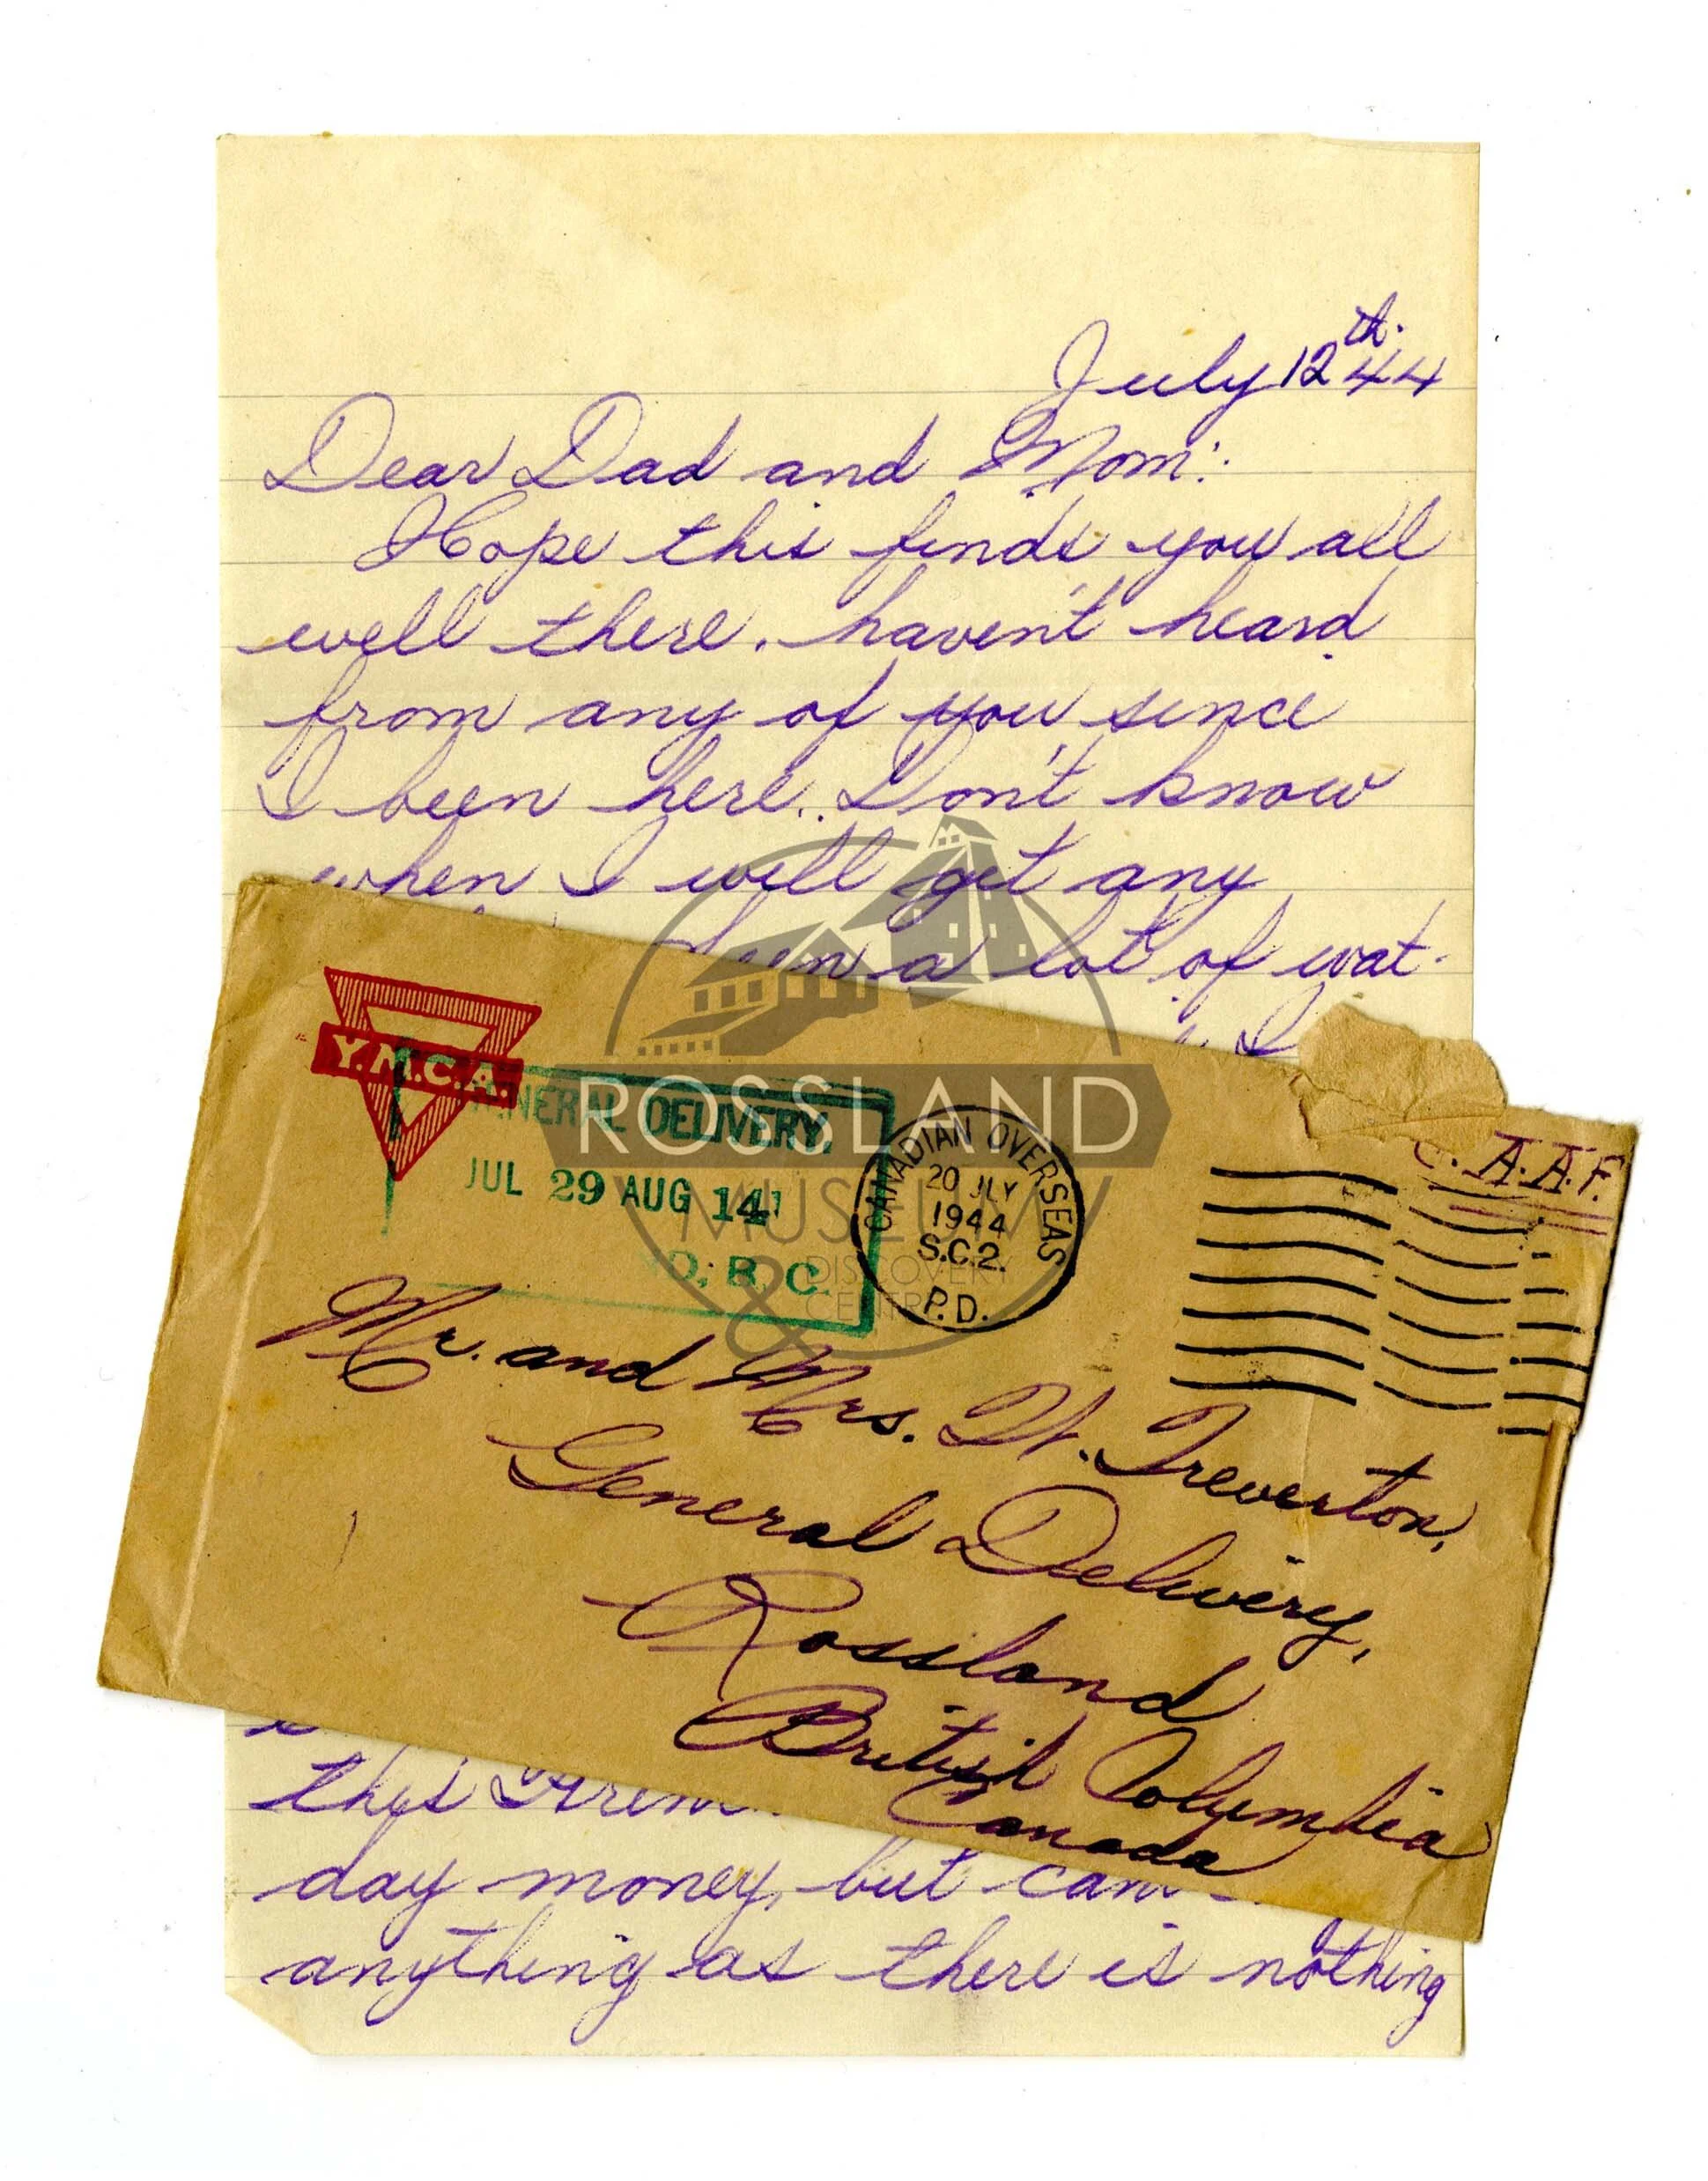 July 12th 44
Dear Dad and Mom:
Hope this finds you all
well there. haven't heard
from any of you since
I been here. Don't know
when I will get any
a lot of wat-
I
Y.M.C.A.
GENERAL DELIVERY,
JUL 29 AUG 14
CANADIAN OVERSEAS
20 JLY
1944
S.C.2.
P.D.
A.A.F.
ROSSLAND
MUSEUM
& DISCOVERY
CENTRE
Mr. and Mrs. H. Treverton,
General Delivery,
Rossland
British Columbia
Canada
this
day money, but can
anything as there is nothing